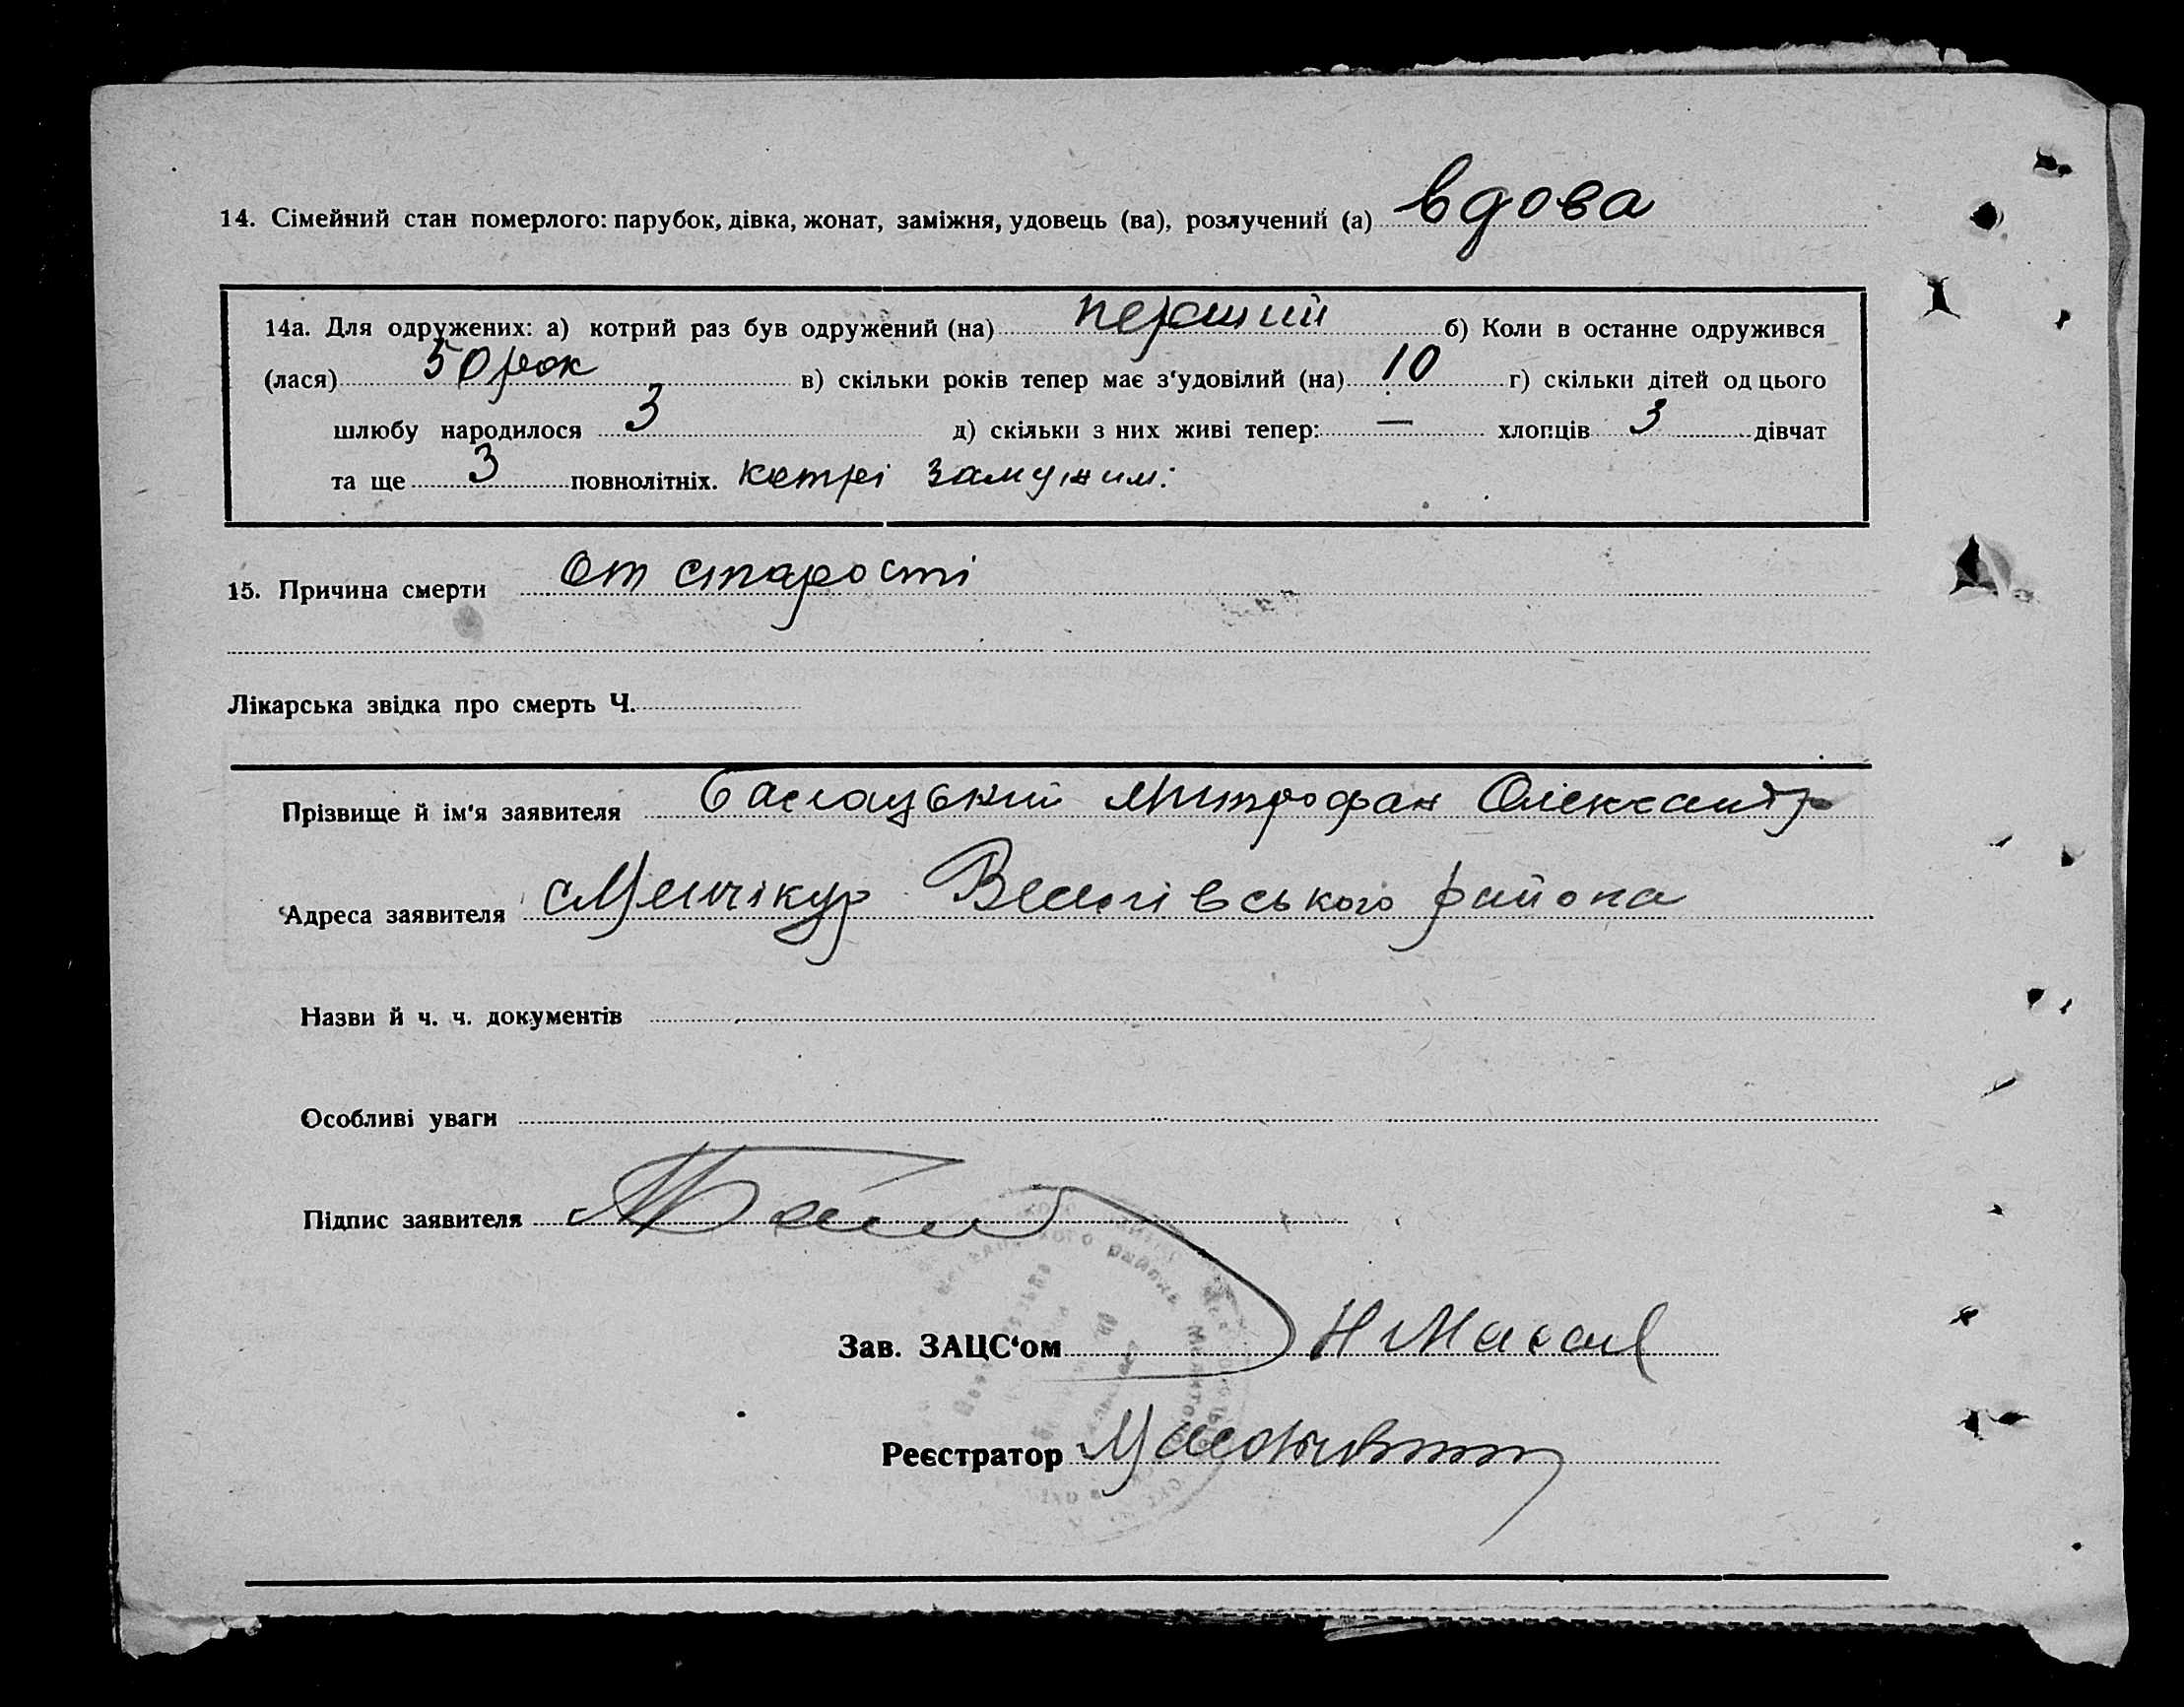 14. Сімейний стан померлого: парубок, дівка, жонат, заміжня, удовець (ва), розлучений (а) вдова
14а. Для одружених: а) котрий раз був одружений (на) перший б) Коли в останнє одружився
(лася) 50 рок в) скільки років тепер має з'удовілий (на) 10 г) скільки дітей од цього
шлюбу народилося 3 д) скільки з них живі тепер: — хлопців 3 дівчат
та ще 3 повнолітніх. котрі замужим:
15. Причина смерти от старості
Лікарська звідка про смерть Ч.
Прізвище й ім'я заявителя Митрофан Олександр
Адреса заявителя с Менчікур Веселівського района
Назви й ч. ч. документів
Особливі уваги
Підпис заявителя
Зав. ЗАЦС'ом
Реєстратор